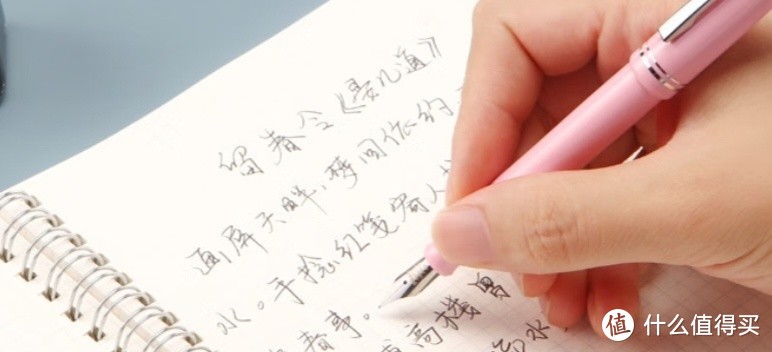 留春令《晏几道》
画屏天畔,梦回依约
水。手捻红笺寄人
春事。高楼曾
水
值 什么值得买